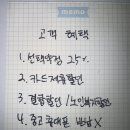 MEMO
고객 혜택
1. 선택약정 25%
2. 카드제휴할인
3. 결합할인/노인복지할인
4. 중고폰매몰 반납 X